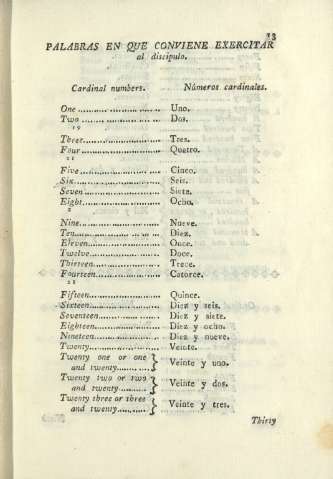 13
PALABRAS EN QUE CONVIENE EXERCITAR
al discipulo.
Cardinal numbers. Números cardinales.
One .......................... Uno.
Two .......................... Dos.
19
Three.......................... Tres.
Four.......................... Quatro.
21
Five.......................... Cinco.
Six.......................... Seis.
Seven.......................... Siete.
Eight.......................... Ocho.
2
Nine.......................... Nueve.
Ten.......................... Diez.
Eleven.......................... Once.
Twelve.......................... Doce.
Thirteen.......................... Trece.
Fourteen.......................... Catorce.
21
Fifteen.......................... Quince.
Sixteen.......................... Diez y seis.
Seventeen.......................... Diez y siete.
Eighteen.......................... Diez y ocho.
Nineteen.......................... Diez y nueve.
Twenty.......................... Veinte.
Twenty one or one
and twenty........... } Veinte y uno.
Twenty two or two
and twenty........... } Veinte y dos.
Twenty three or three
and twenty........... } Veinte y tres.
Thirty